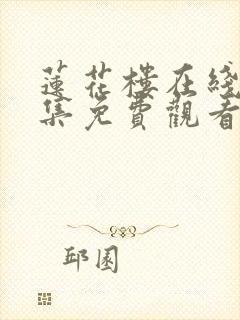 蓮花樓在綫
集免費觀看
邱園